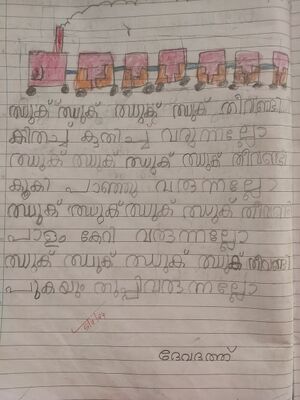 ഝുക് ഝുക് ഝുക് ഝുക് തീവണ്ടി
കിതച്ച് കുതിച്ച് വരുന്നല്ലോ
ഝുക് ഝുക് ഝുക് ഝുക് തീവണ്ടി
കൂകി പാഞ്ഞു വരുന്നല്ലോ
ഝുക് ഝുക് ഝുക് ഝുക് തീവണ്ടി
പാളം കേറി വരുന്നല്ലോ
ഝുക് ഝുക് ഝുക് ഝുക് തീവണ്ടി
പുകയും തുപ്പിവരുന്നല്ലോ
ദേവദത്ത്